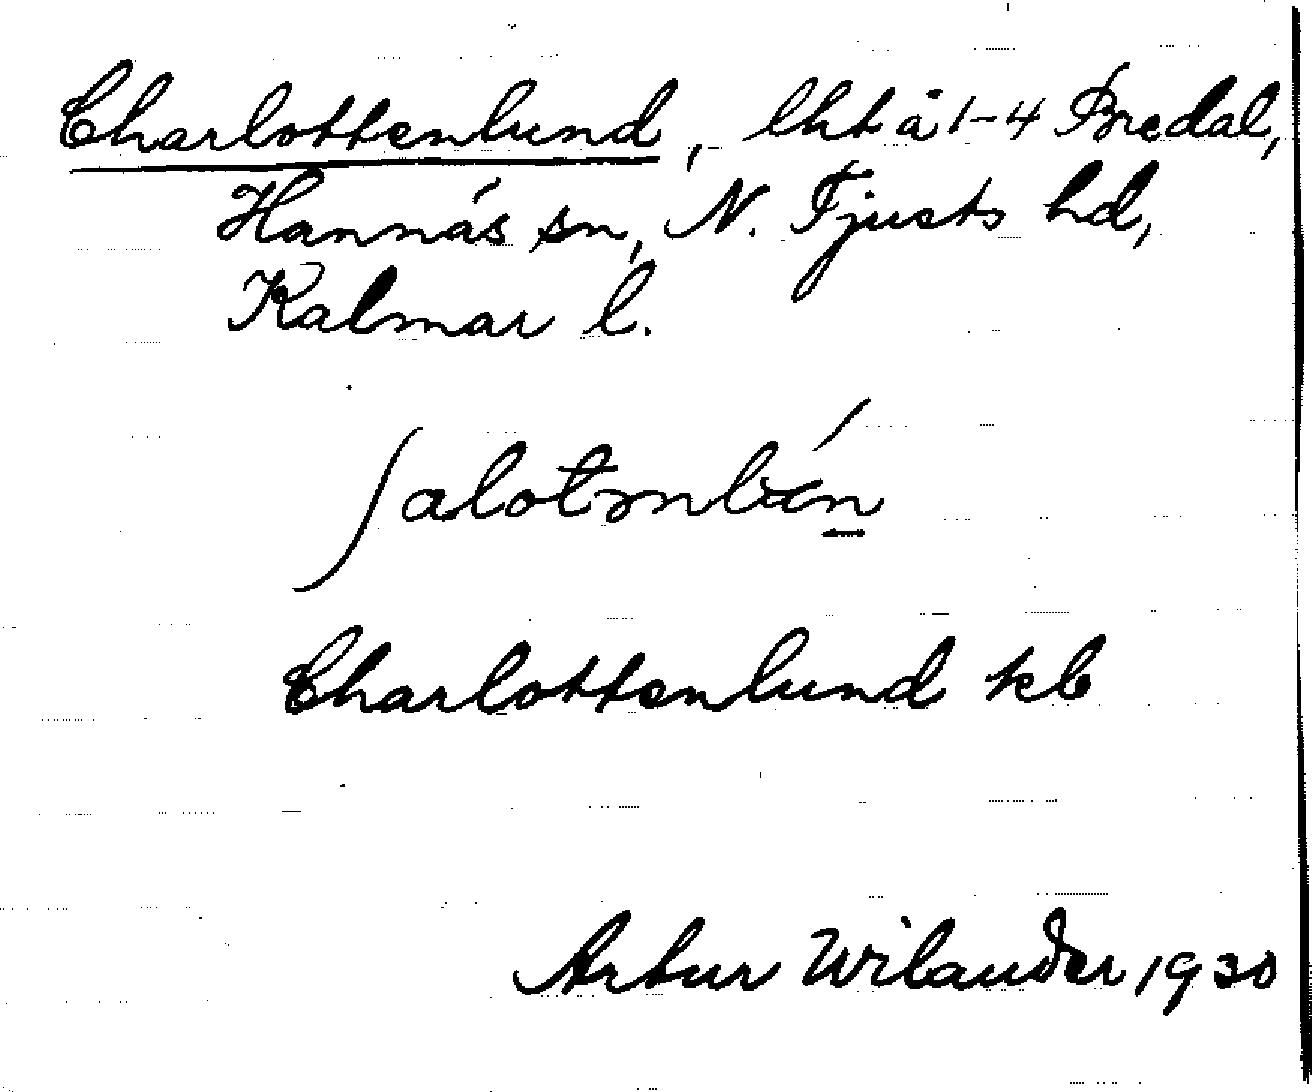 Charlottenlund, lht å 1-4 Bredal,
Hannäs sn, N. Tjusts hd,
Kalmar l.
Charlottenlund kb
Artur Wilander 1930